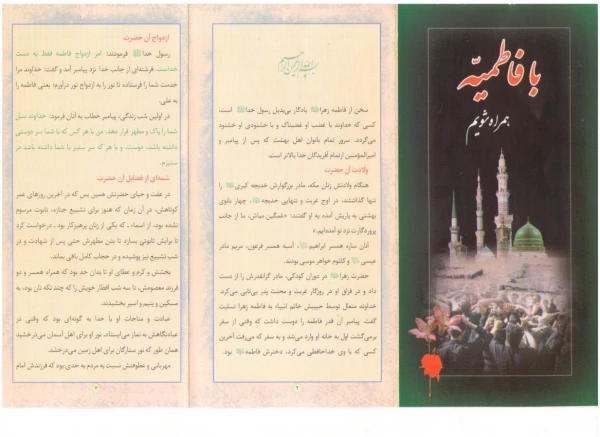 با فاطمیّه
همراه شویم
بسم الله الرحمن الرحیم
سخن از فاطمه زهرا یادگار بی‌بدیل رسول خدا است،
کسی که خداوند با غضب او غضبناک و با خشنودی او خشنود
می‌گردد. سرور تمام بانوان اهل بهشت که پس از پیامبر و
امیرالمؤمنین ازتمام آفریدگان خدا بالاتر است.
ولادت آن حضرت
هنگام ولادتش زنان مکه، مادر بزرگوارش خدیجه کبری را
تنها گذاشتند. در اوج غربت و تنهایی خدیجه، چهار بانوی
بهشتی به یاریش آمده به او گفتند: «غمگین مباش، ما از جانب
پروردگارت نزد تو آمده‌ایم.»
آنان ساره همسر ابراهیم، آسیه همسر فرعون، مریم مادر
عیسی و کلثوم خواهر موسی بودند.
حضرت زهرا در دوران کودکی، مادر گرانقدرش را از دست
داد و در فراق او در روزگار غربت و محنت پدر بی‌تابی می‌کرد.
خداوند متعال توسط حبیبش خاتم انبیاء به فاطمه زهرا تسلیت
گفت. پیامبر آن قدر فاطمه را دوست داشت که وقتی از سفر
برمی‌گشت اول به خانه او وارد می‌شد و به سفر که می‌رفت آخرین
کسی که با وی خداحافظی می‌کرد، دخترش فاطمه بود.
۲
ازدواج آن حضرت
رسول خدا فرمودند: امر ازدواج فاطمه فقط به دست
خداست. فرشته‌ای از جانب خدا نزد پیامبر آمد و گفت: خداوند مرا
خدمت شما را فرستاده تا نور را به ازدواج نور درآورم؛ یعنی فاطمه را
به علی.
در اولین شب زندگی، پیامبر خطاب به آنان فرمود: خداوند نسل
شما را پاک و مطهر قرار دهد. من با هر کس که با شما سر دوستی
داشته باشد، دوست، و با هر که سر ستیز با شما داشته باشد در
ستیزم.
شمه‌ای از فضایل آن حضرت
در عفت و حیای حضرتش همین بس که در آخرین روزهای عمر
کوتاهش، در آن زمان که هنوز برای تشییع جنازه، تابوت مرسوم
نشده بود، از اسماء ـ که یکی از زنان پرهیزکار بود ـ درخواست کرد
تا برایش تابوتی بسازد تا بدن مطهرش حتی پس از شهادت و در
شب تشییع نیز پوشیده و در حجاب کامل باقی بماند.
بخشش و کرم و عطای او تا بدان حد بود که همراه همسر و دو
فرزند معصومش، تا سه شب افطار خویش را که چند تکه نان بود، به
مسکین و یتیم و اسیر بخشیدند.
عبادت و مناجات او با خدا به گونه‌ای بود که وقتی در
عبادتگاهش به نماز می‌ایستاد، نور او برای اهل آسمان می‌درخشید
همان طور که نور ستارگان برای اهل زمین می‌درخشد.
مهربانی و عطوفتش نسبت به مردم به حدی بود که فرزندش امام